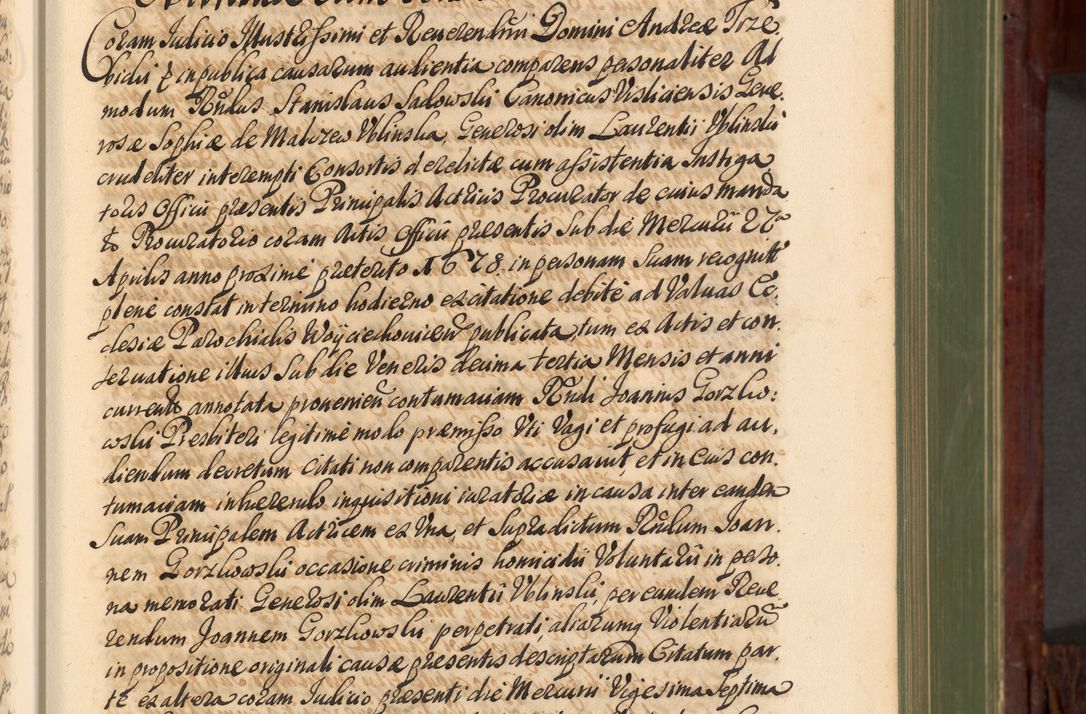 Coram Iudicio Illustrissimi et Reverendissimi Domini Andreæ Trze
bicki & in publica causarum audientia comparens personaliter Ad
modum Rndus Stanislaus Sadowski Canonicus Visliciensis Gene.
rosæ Sophiæ de Malczew Vblinska, Generosi olim Laurentii Vblinski
crudeliter interempti Consortis derelictæ cum assistentia Instiga
toris Officii præsentis Principalis Actricis Procurator de cuius manda
to Procuratorio coram Actis Officii præsentis Sub die Mercurii 27a
Aprilis anno proxime præterito 1678. in personam Suam recognitt
plene constat in termino hodierno ex citatione debite ad Valuas Ec.
clesiæ Parochialis Woyciechovien publicata, tum ex Actis et con.
seruatione illius Sub die Veneris decima tertia Mensis et anni
currents annotata provenien contumaciam Rndi Joannis Gorzko:
wski Presbiteri legitime modo præmisso Vti Vagi et profugi ad au.
diendum decretum citati non comparentis accusavit et in eius con.
tumaciam inhærendo inquisitioni iuratoriæ in causa inter eandem
Suam Principalem Actricem ex Vna, et Supradictum Rndum Joan.
nem Gorzkowski occasione criminis homicidii Voluntarii in perso.
na memorati Generosi olim Laurentii Vblinski, per eundem Reue
rendum Joannem Gorzkowski perpetrati, aliarumq Violentiarum
in propositione originali causæ præsentis descriptarum Citatum par.
te ex altera coram Iudicio præsenti die Mercurii Vigesima Septima